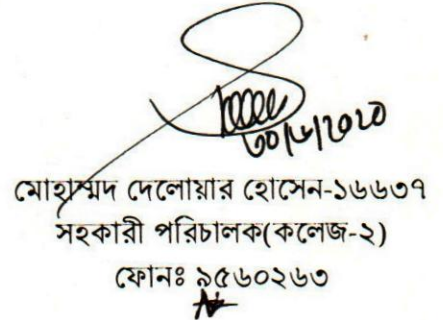 ৩০/৬/২০২০
মোহাম্মদ দেলোয়ার হোসেন-১৬৬৩৭
সহকারী পরিচালক(কলেজ-২)
ফোনঃ ৯৫৬০২৬৩